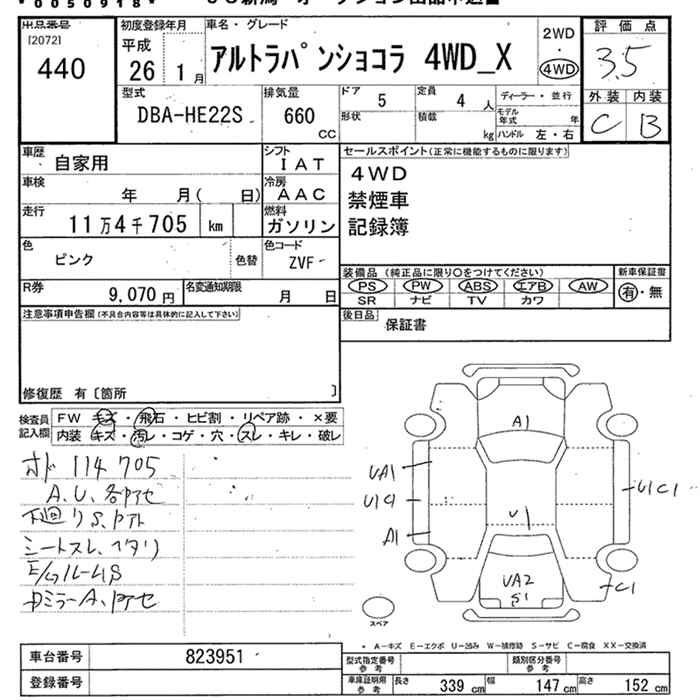 * 0050918 *
出品番号
[2072]
440
初度登録年月
平成
26 1 月
車名・グレード
アルトラパンショコラ 4WD_X
2WD
・
4WD
評価点
3.5
外装 内装
C B
型式
DBA-HE22S
排気量
660
CC
ドア
5
定員
4 人
形状
積載
kg
ディーラー・並行
モデル年式 年
ハンドル 左・右
車歴
自家用
シフト
IAT
車検
年 月( 日)
冷房
AAC
走行
11万4千705 km
燃料
ガソリン
色
ピンク
色替
色コード
ZVF
R券
9,070 円
名変通知期限
月 日
セールスポイント(正常に機能するものに限ります)
4WD
禁煙車
記録簿
装備品(純正品に限り○をつけてください)
新車保証書
PS PW ABS エアB AW
SR ナビ TV カワ
有・無
後日品
保証書
注意事項申告欄(不具合内容等は具体的に記入して下さい)
修復歴 有〔箇所 〕
検査員
記入欄
FW キズ・飛石・ヒビ割・リペア跡・×要
内装 キズ・汚レ・コゲ・穴・スレ・キレ・破レ
オド 114705
A.U、各アセ
下廻リS、
シートスレ、ヘタリ
E/gルームS
ドミラーA、アセ
A1
UA1
U1C1
A1
U1
U1C1
UA2
S1
C1
スペア
* A-キズ E-エクボ U-凹み W-補修跡 S-サビ C-腐食 XX-交換済
車台番号 823951
登録番号
型式指定番号
参考
類別区分番号
参考
車庫証明用
参考
長さ 339 cm 幅 147 cm 高さ 152 cm